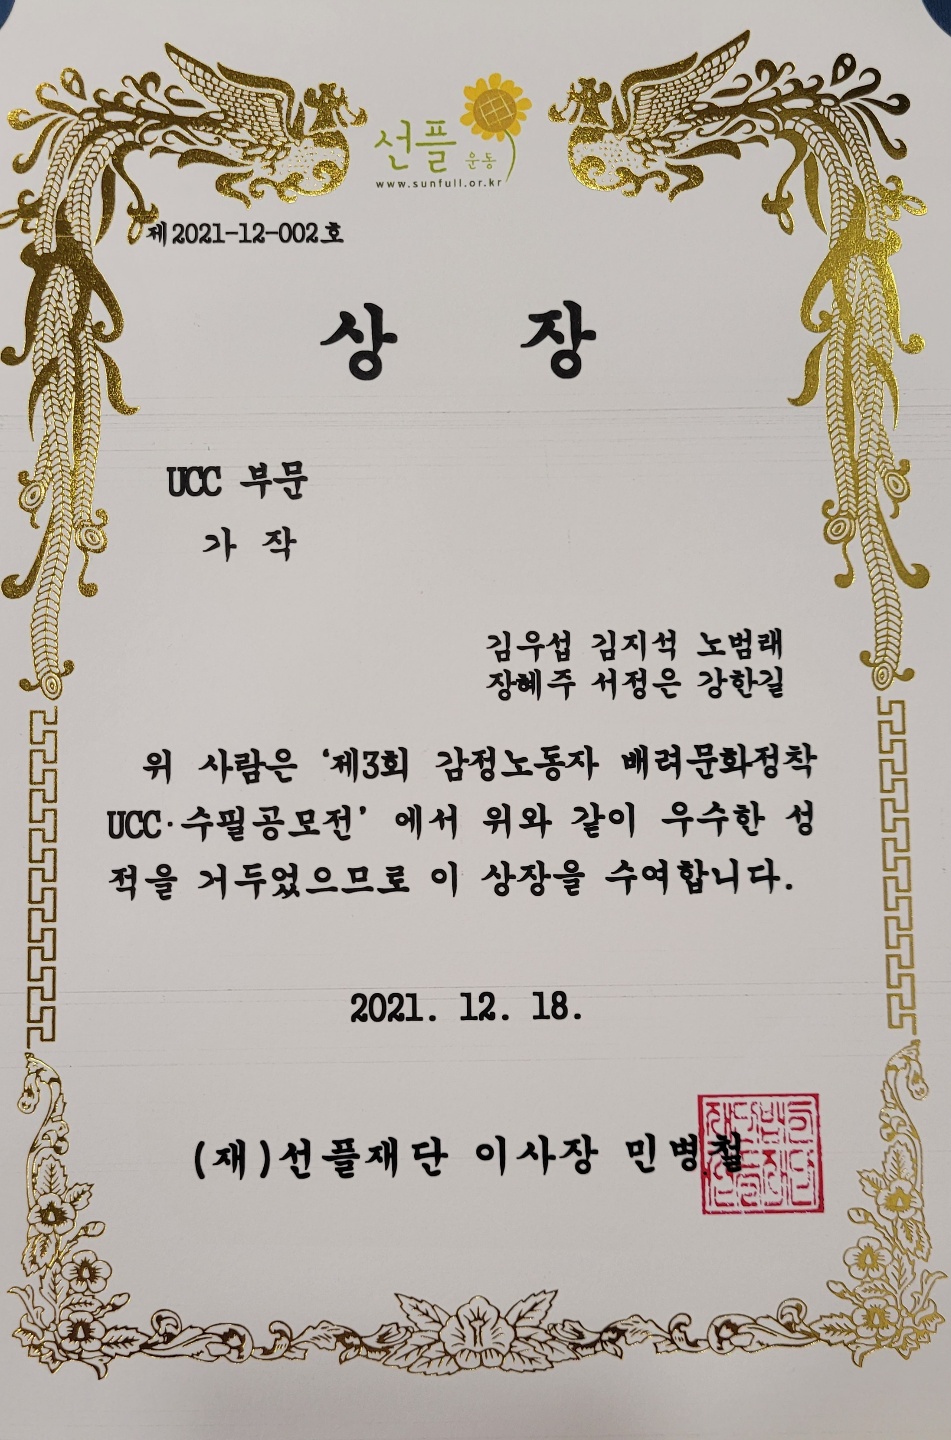 선플 운동
www.sunfull.or.kr
제2021-12-002호
상 장
UCC 부문
가 작
김우섭 김지석 노범래
장혜주 서정은 강한길
위 사람은 '제3회 감정노동자 배려문화정착
UCC·수필공모전' 에서 위와 같이 우수한 성
적을 거두었으므로 이 상장을 수여합니다.
2021. 12. 18.
(재)선플재단 이사장 민병철